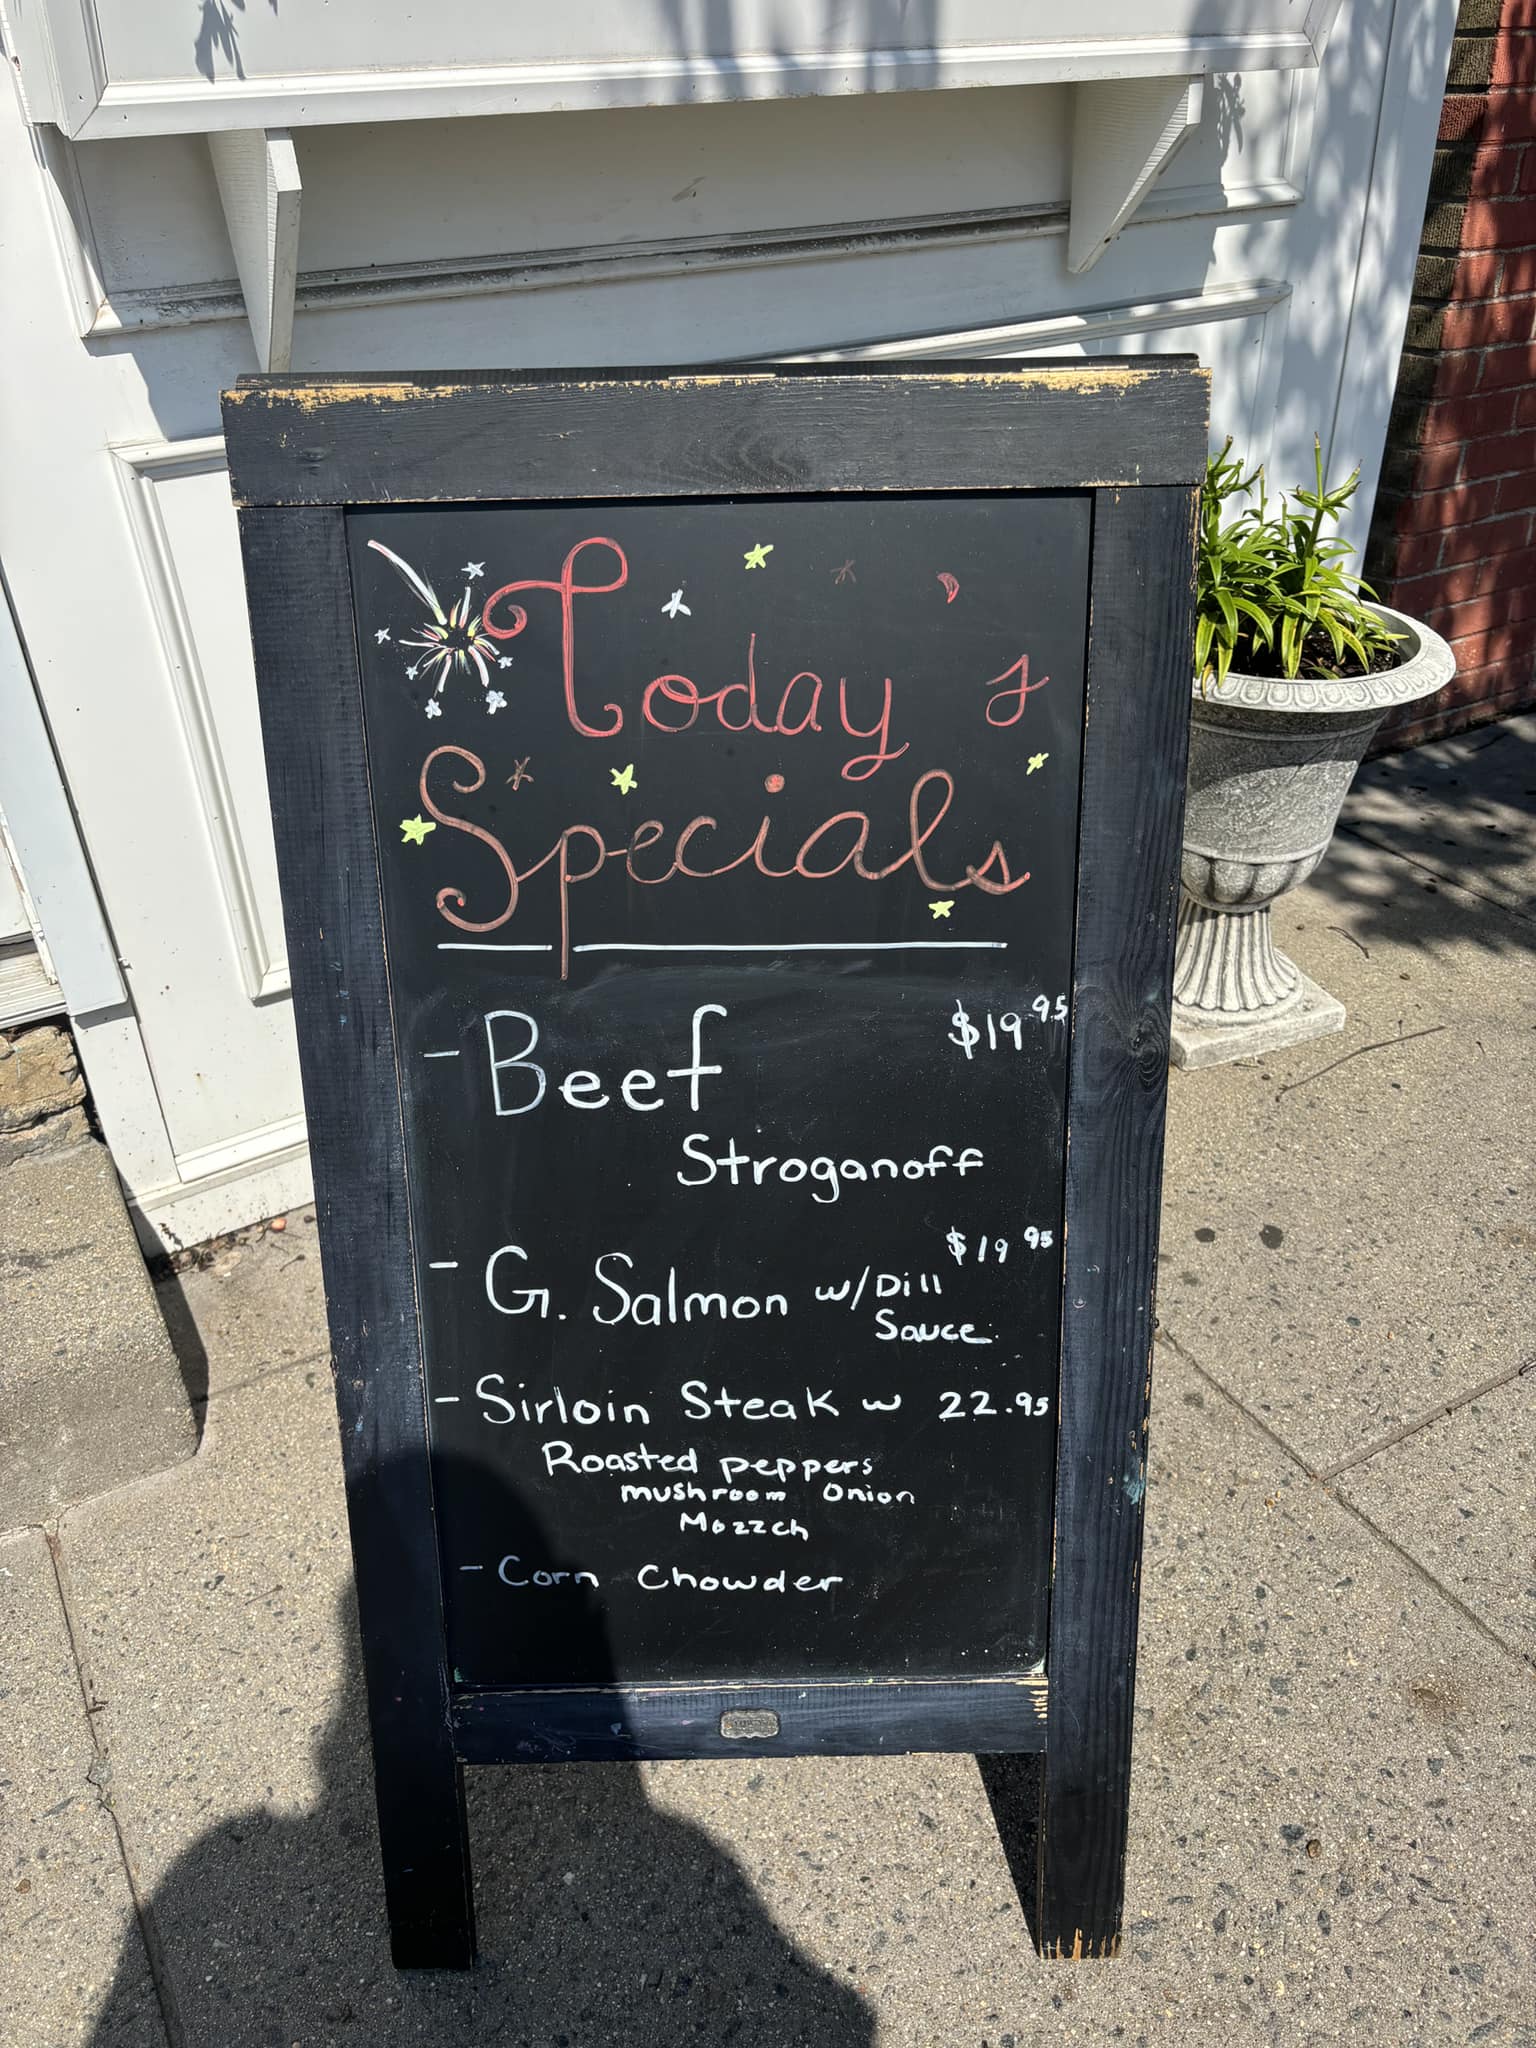 Today's
Specials
- Beef $19.95
Stroganoff
- G. Salmon w/Dill $19.95
Sauce
- Sirloin Steak w 22.95
Roasted peppers
mushroom onion
Mozzch
- Corn Chowder